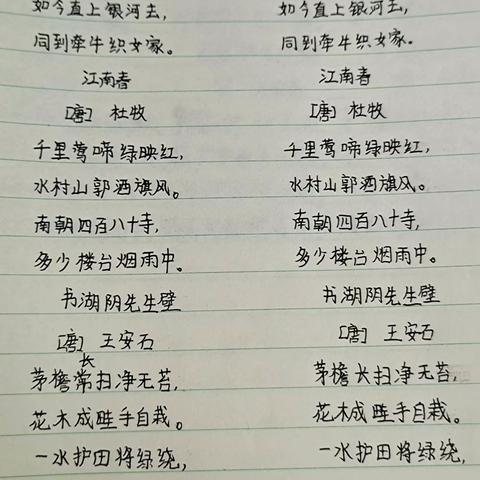 如今直上银河去，
同到牵牛织女家。
江南春
[唐] 杜牧
千里莺啼绿映红，
水村山郭酒旗风。
南朝四百八十寺，
多少楼台烟雨中。
书湖阴先生壁
[唐] 王安石
长
茅檐常扫净无苔，
花木成畦手自栽。
一水护田将绿绕，
如今直上银河去，
同到牵牛织女家。
江南春
[唐] 杜牧
千里莺啼绿映红，
水村山郭酒旗风。
南朝四百八十寺，
多少楼台烟雨中。
书湖阴先生壁
[唐] 王安石
茅檐长扫净无苔，
花木成畦手自栽。
一水护田将绿绕，